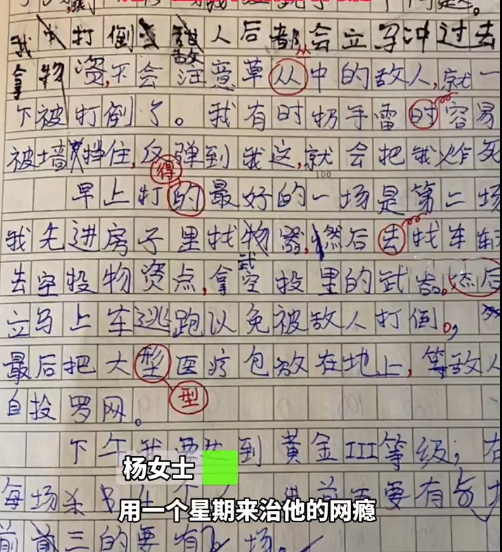 我打倒敌人后都会立马冲过去
拿物资,不会注意草从中的敌人,就一
丛
下被打倒了。我有时扔手雷时容易
被墙挡住,反弹到我这,就会把我炸
得
早上打的最好的一场是第二场
100
我先进房子里找物器,然后去找车
去空投物资点,拿空投里的武器。然后
武
立马上车逃跑以免被敌人打倒。
最后把大型医疗包放在地上,等敌人
型
自投罗网。
下午我要 到黄金III等级;在
杨女士
每场杀 要有
用一个星期来治他的网瘾
前三的要有 场。